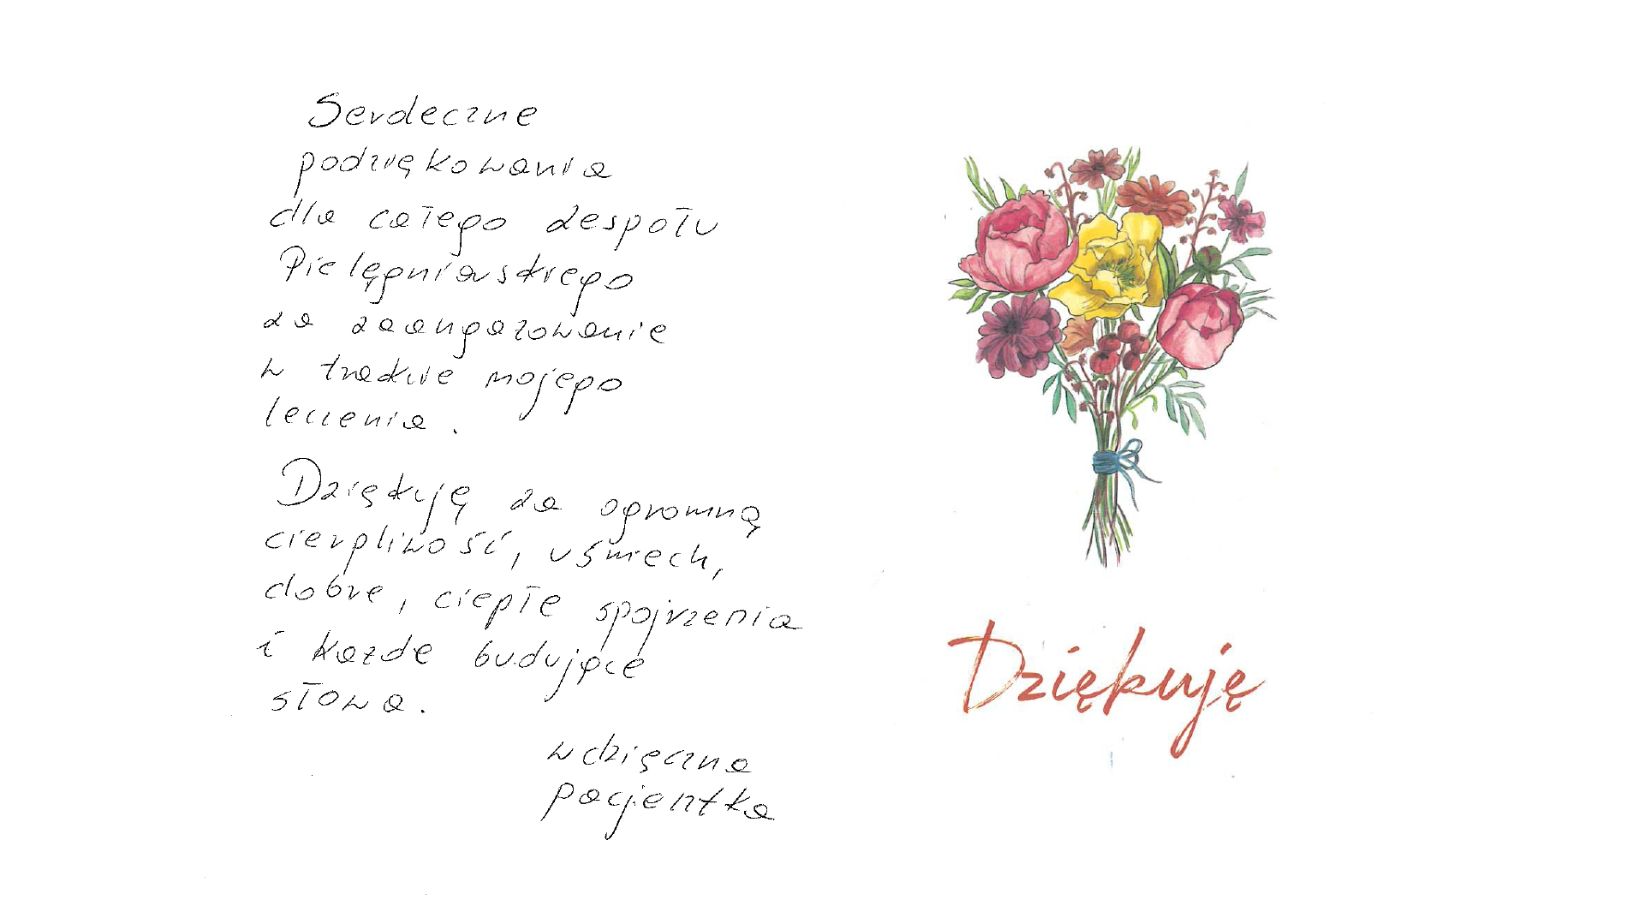 Serdeczne
podziękowania
dla całego zespołu
Pielęgniarskiego
za zaangażowanie
w trakcie mojego
leczenia.
Dziękuję za ogromną
cierpliwość, uśmiech,
dobre, ciepłe spojrzenia
i każde budujące
słowa.
wdzięczna
pacjentka
Dziękuję